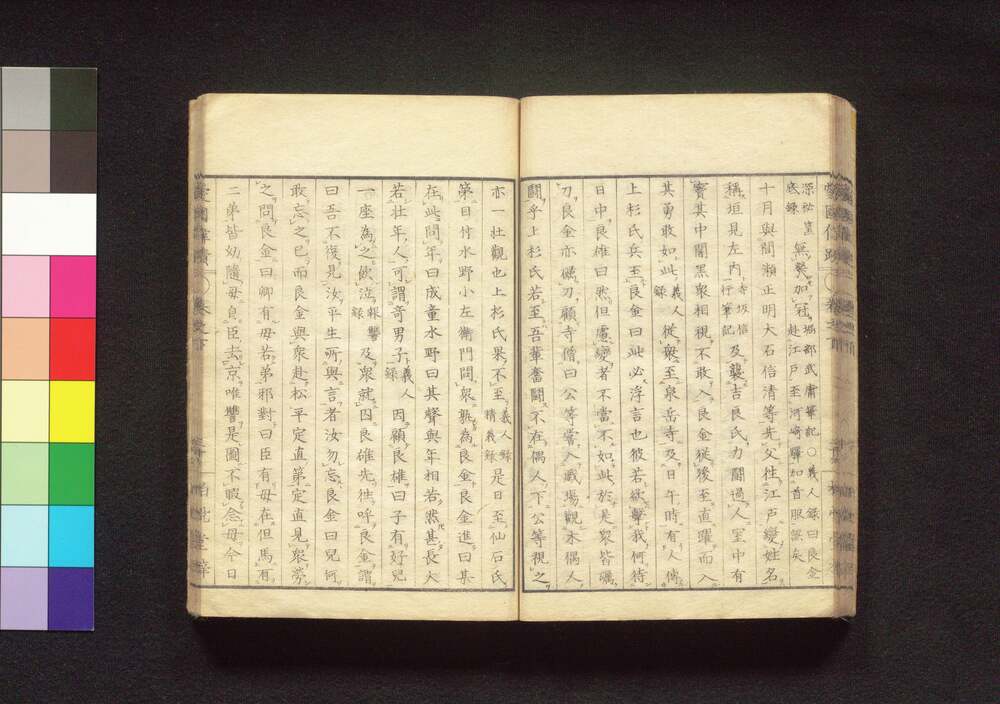 深祕葉 無樊加社 堀部武庸筆記○義人錄曰良金
底錄 赴江戸至河崎驛加首服誤矣
十月與間瀨正明大石信清等先父徃江戸變姓名
稱垣見左内 寺坂信行筆記 及襲吉良氏力鬪過人室中有
竇其中闇黑衆相視不敢入良金從後至直躍而入
其勇敢如此 義人錄 從衆至泉岳寺及日午時有人傳
上杉氏兵至良金曰此必浮言也彼若欲擊我何待
日中良雄曰然但慮變者不當不如此於是衆皆礪
刀良金亦礪刀顧寺僧曰公等嘗入戲場觀木偶人
鬪乎上杉氏若至吾輩奮鬪不在偶人下公等視之
亦一壯觀也上杉氏果不至 義人錄精義錄 是日至仙石氏
第目付水野小左衛門問衆孰為良金良金進曰某
在此問年曰成童水野曰其聲與年相若然甚長大
若壯年人可謂奇男子 義人錄 因顧良雄曰子有好兒
一座為之飲泣 報讐錄 及衆就囚良確先徃呼良金謂
曰吾不復見汝平生所與言者汝勿忘良金曰兒何
敢忘之已而良金與衆赴松平定直第定直見衆勞
之問良金曰卿有母若弟邪對曰臣有母在但馬有
二弟皆幼隨母自臣去京唯讐是圖不暇念母今日